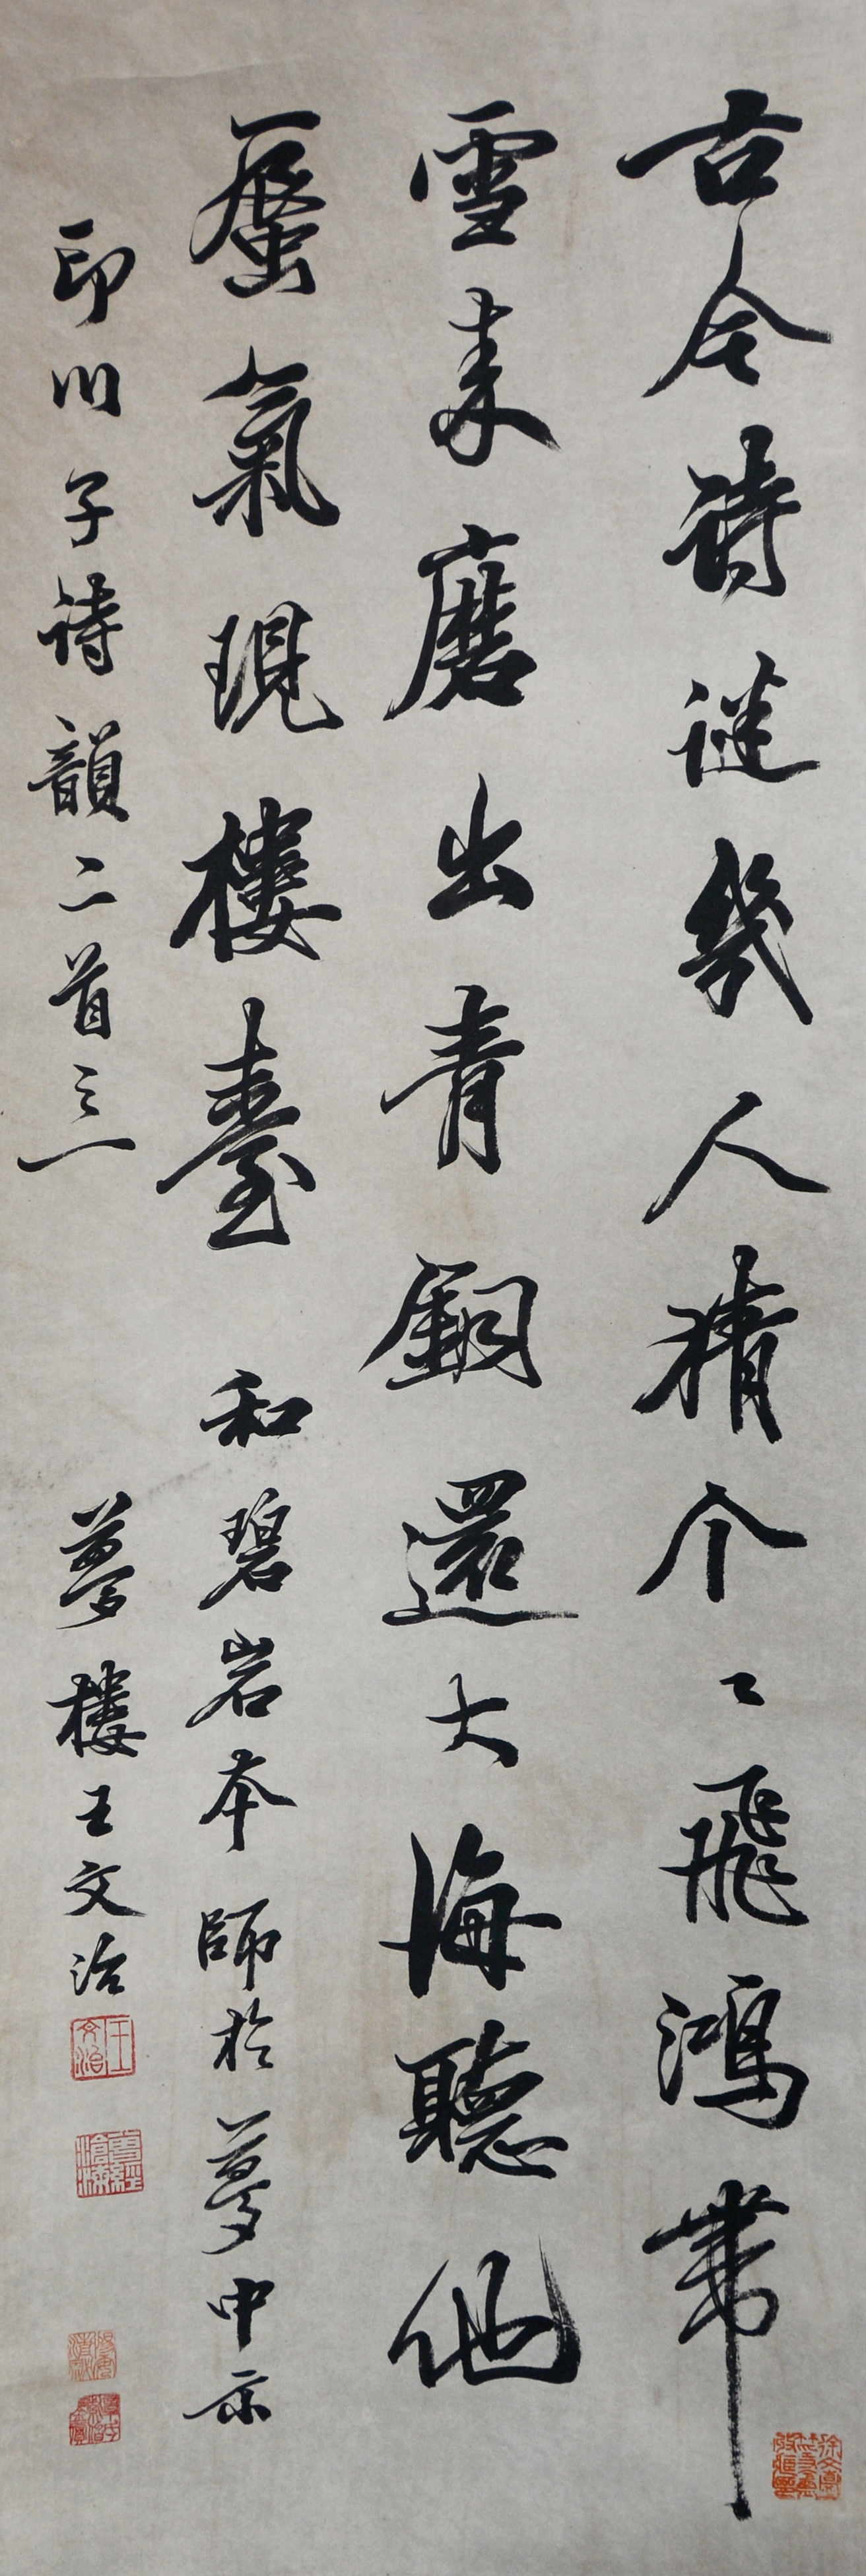 古今詩謎幾人猜个〻飛鴻帶
雪来磨出青銅還大海聽他
蜃氣現樓臺 和碧岩本師於夢中示
印川子詩韻二首之一 夢樓王文治
王文治
曾經滄海